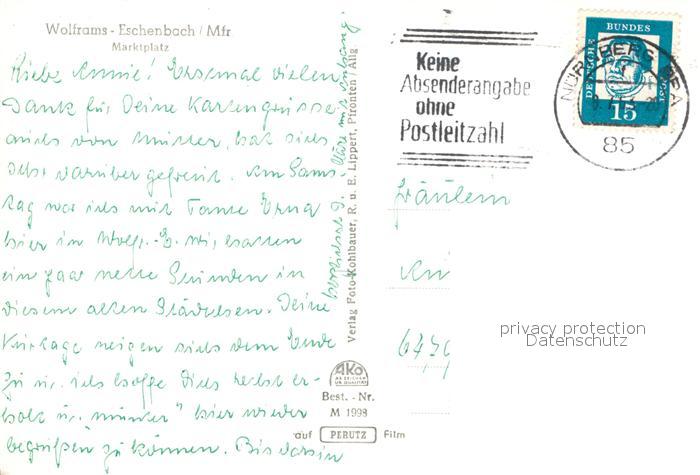 Wolframs - Eschenbach / Mfr
Marktplatz
Liebe Annie! Erstmal vielen
Dank für Deine Kartengrüsse
auch von Mutter, hat sich
sehr darüber gefreut. Am Sams-
tag war ich mit Tante Erna
hier in Wolfr.-E. wir hatten
ein paar nette Stunden in
diesem alten Städtchen. Deine
Kurtage neigen sich dem Ende
zu u. ich hoffe Dich recht er-
holt u. "munter" hier wieder
begrüßen zu können. Bis dahin
herzlichst D.
Verlag Foto-Kohlbauer, R. u. E. Lippert, Pfronten / Allg
AKO
Best. - Nr.
M 1998
auf PERUTZ Film
Keine
Absenderangabe
ohne
Postleitzahl
DEUTSCHE BUNDESPOST
15
NÜRNBERG
85
Fräulein
privacy protection
Datenschutz